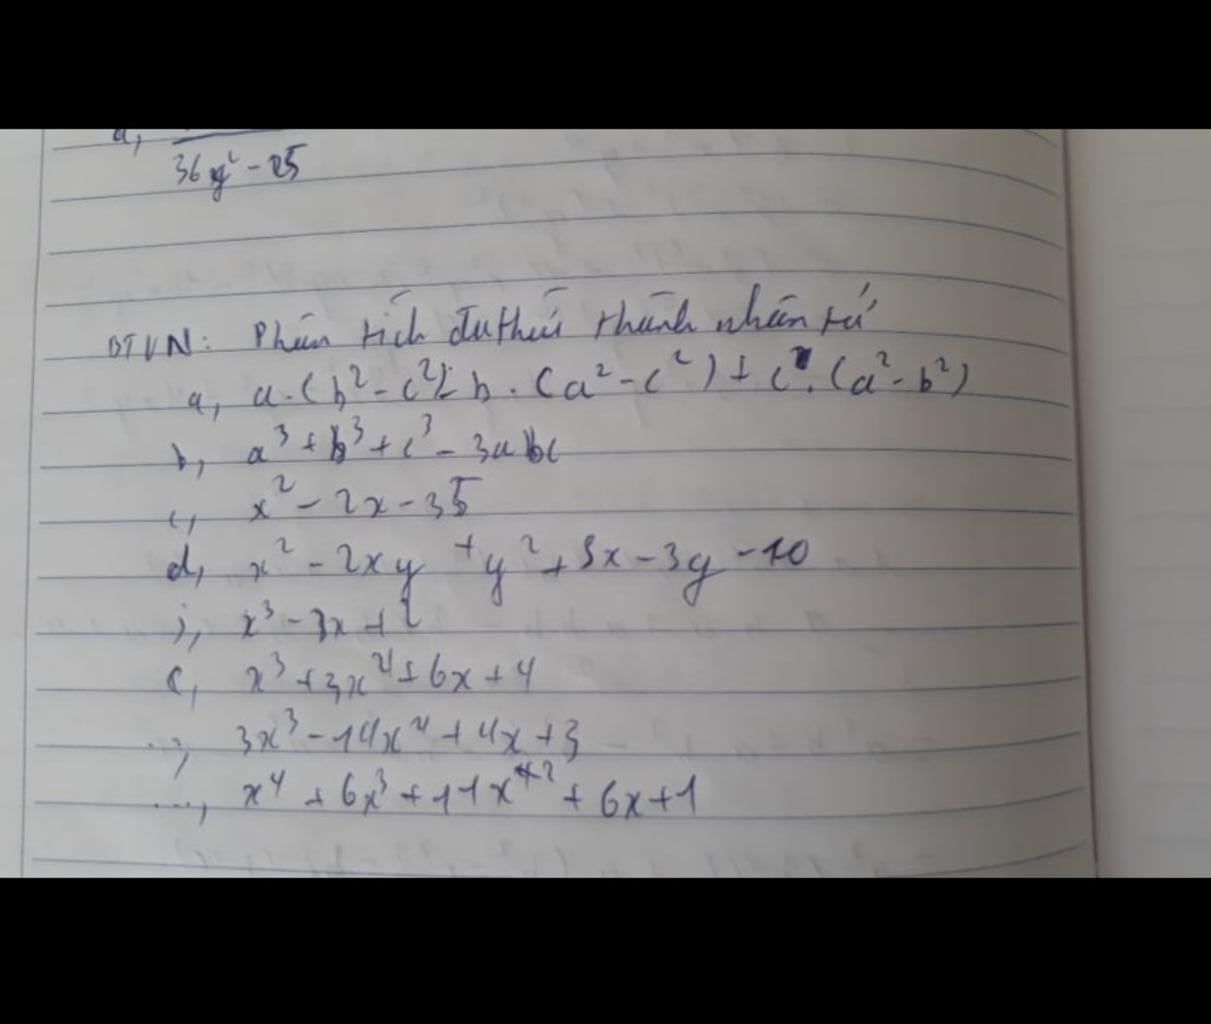 a,
36y² - 25
BTVN: Phân tích đa thức thành nhân tử
a, a.(b² - c²) - b.(a² - c²) + c.(a² - b²)
b, a³ + b³ + c³ - 3abc
c, x² - 2x - 35
d, x² - 2xy + y² + 3x - 3y - 10
j, x³ - 3x + 2
c, x³ + 3x² + 6x + 4
..., 3x³ - 14x² + 4x + 3
..., x⁴ + 6x³ + 11x² + 6x + 1